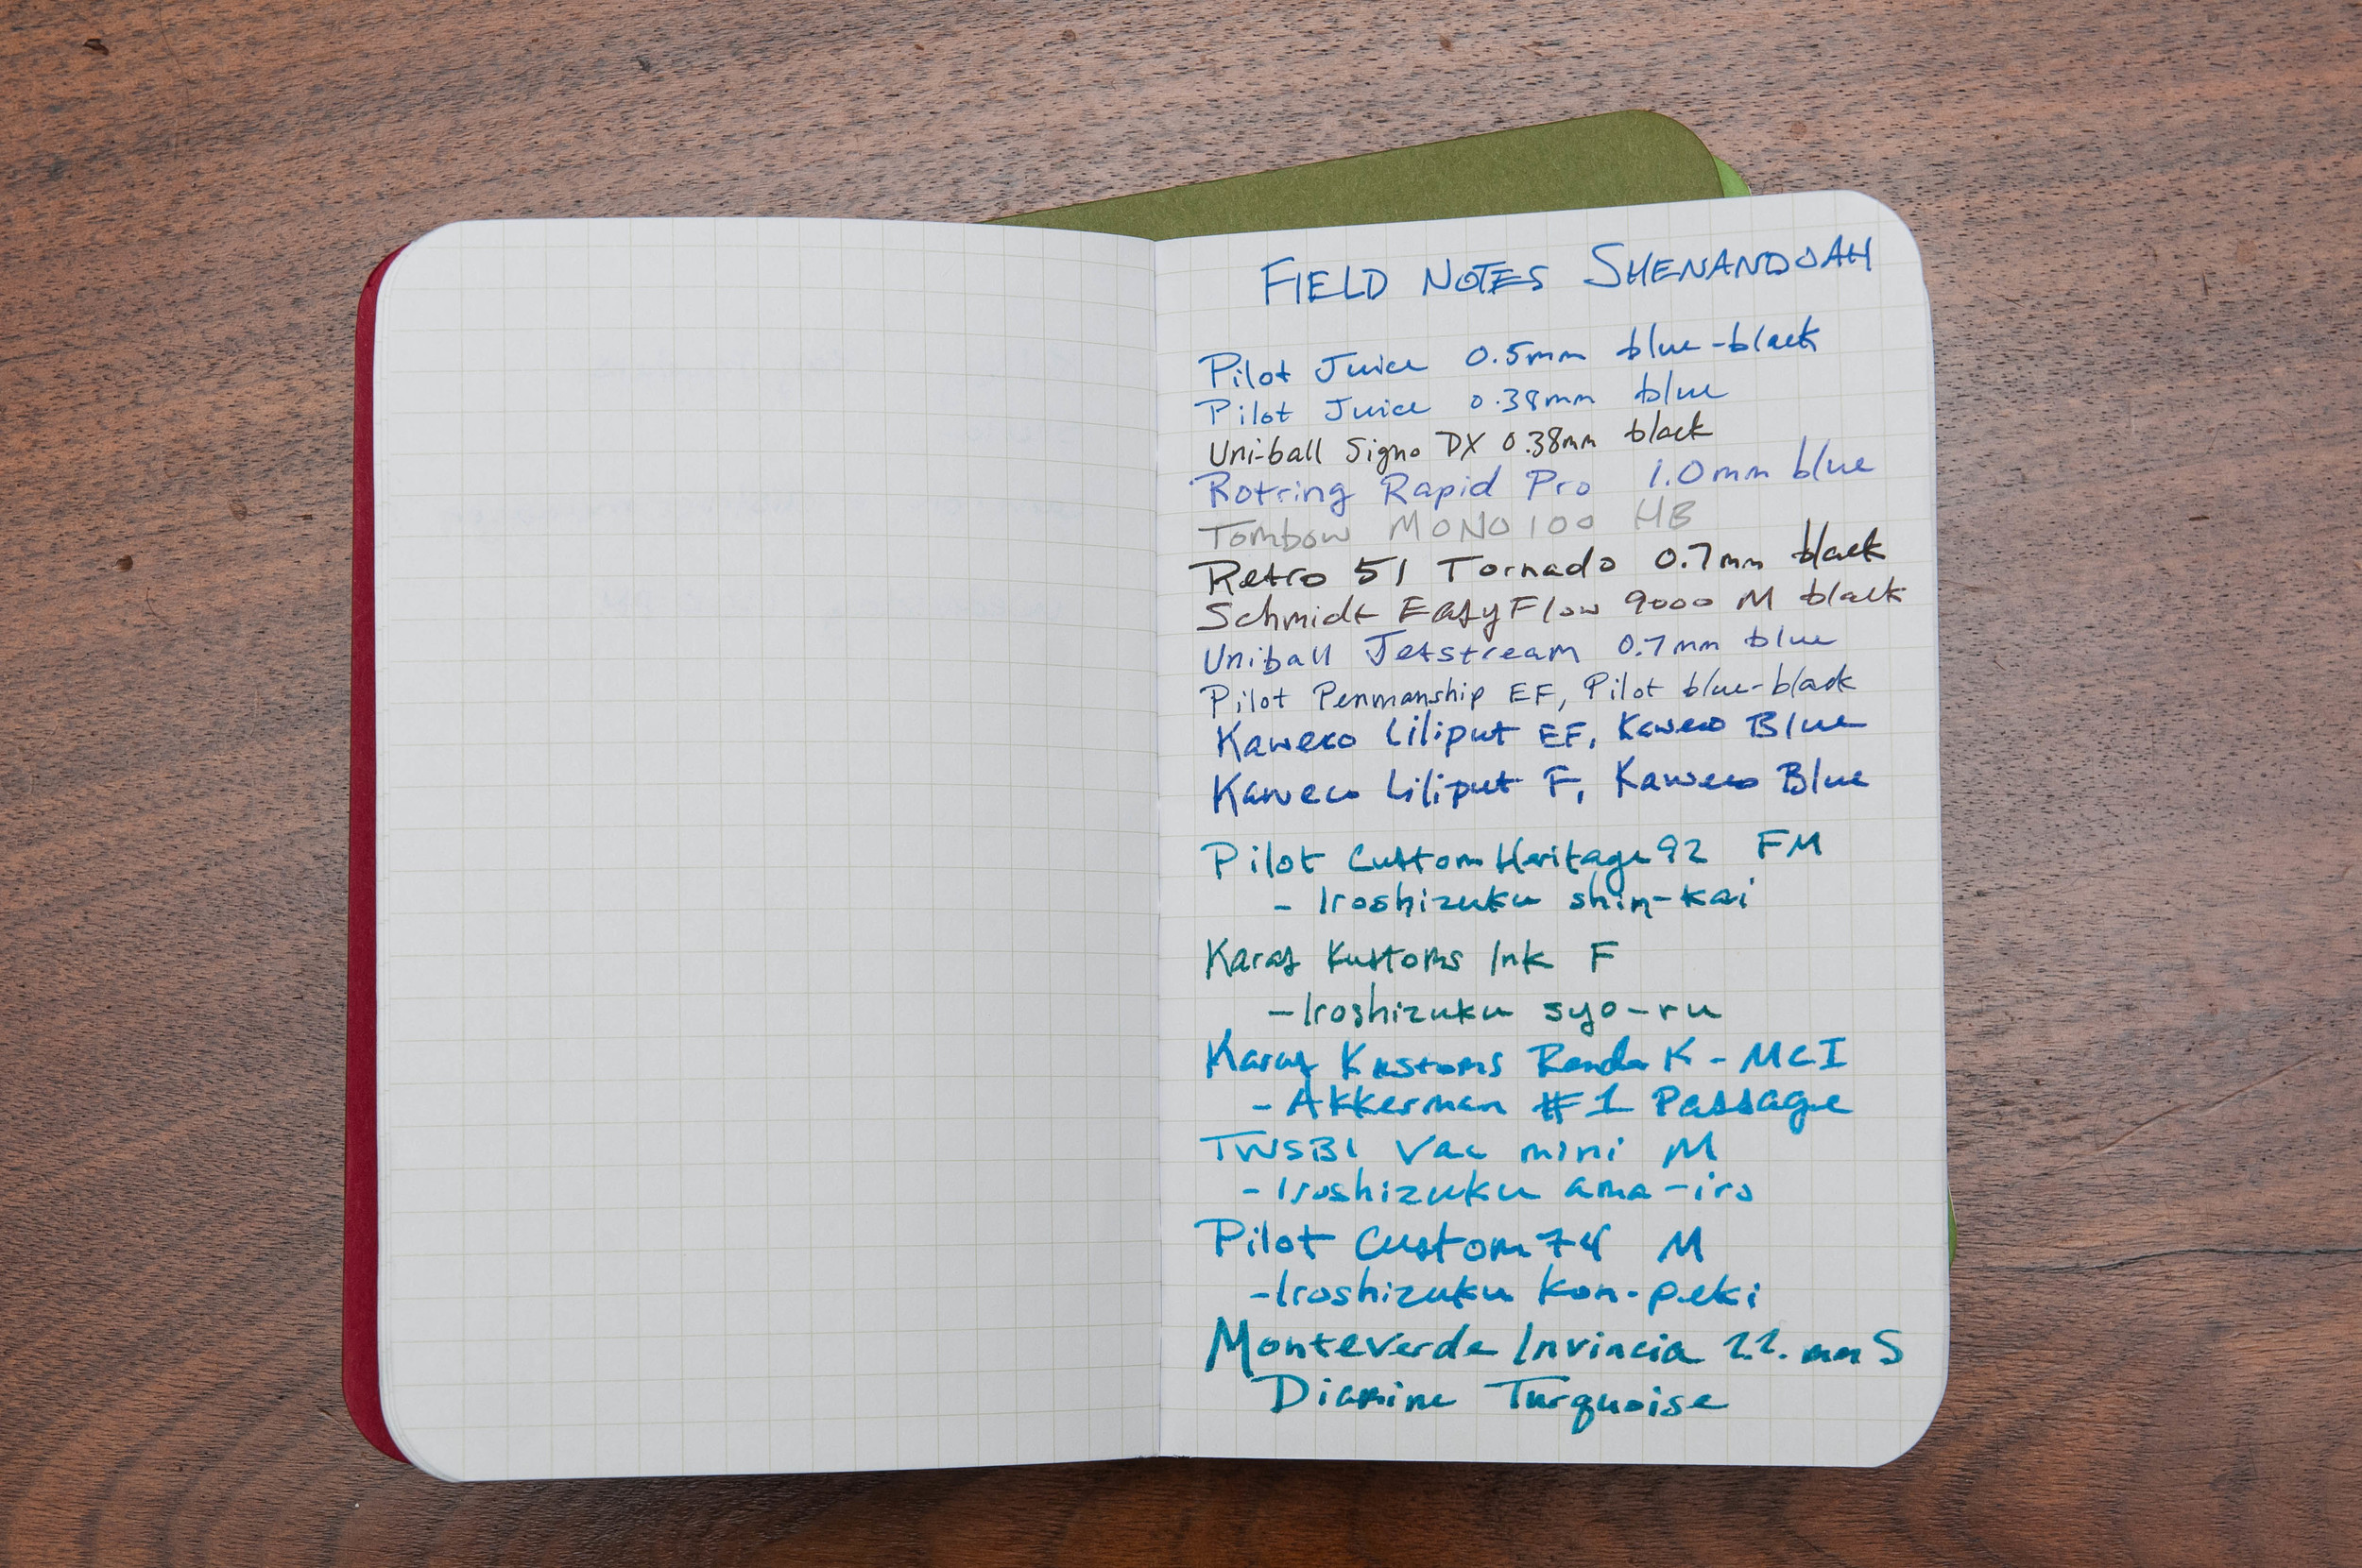 FIELD NOTES SHENANDOAH
Pilot Juice 0.5mm blue-black
Pilot Juice 0.38mm blue
Uni-ball Signo DX 0.38mm black
Rotring Rapid Pro 1.0mm blue
Tombow MONO 100 HB
Retro 51 Tornado 0.7mm black
Schmidt EasyFlow 9000 M black
Uniball Jetstream 0.7mm blue
Pilot Penmanship EF, Pilot blue-black
Kaweco Liliput EF, Kaweco Blue
Kaweco Liliput F, Kaweco Blue
Pilot Custom Heritage 92 FM
- Iroshizuku shin-kai
Karas Kustoms Ink F
- Iroshizuku syo-ro
Karas Kustoms Render K - MCI
- Akkerman #1 Passage
TWSBI Vac mini M
- Iroshizuku ama-iro
Pilot Custom 74 M
- Iroshizuku kon-peki
Monteverde Invincia S
Diamine Turquoise